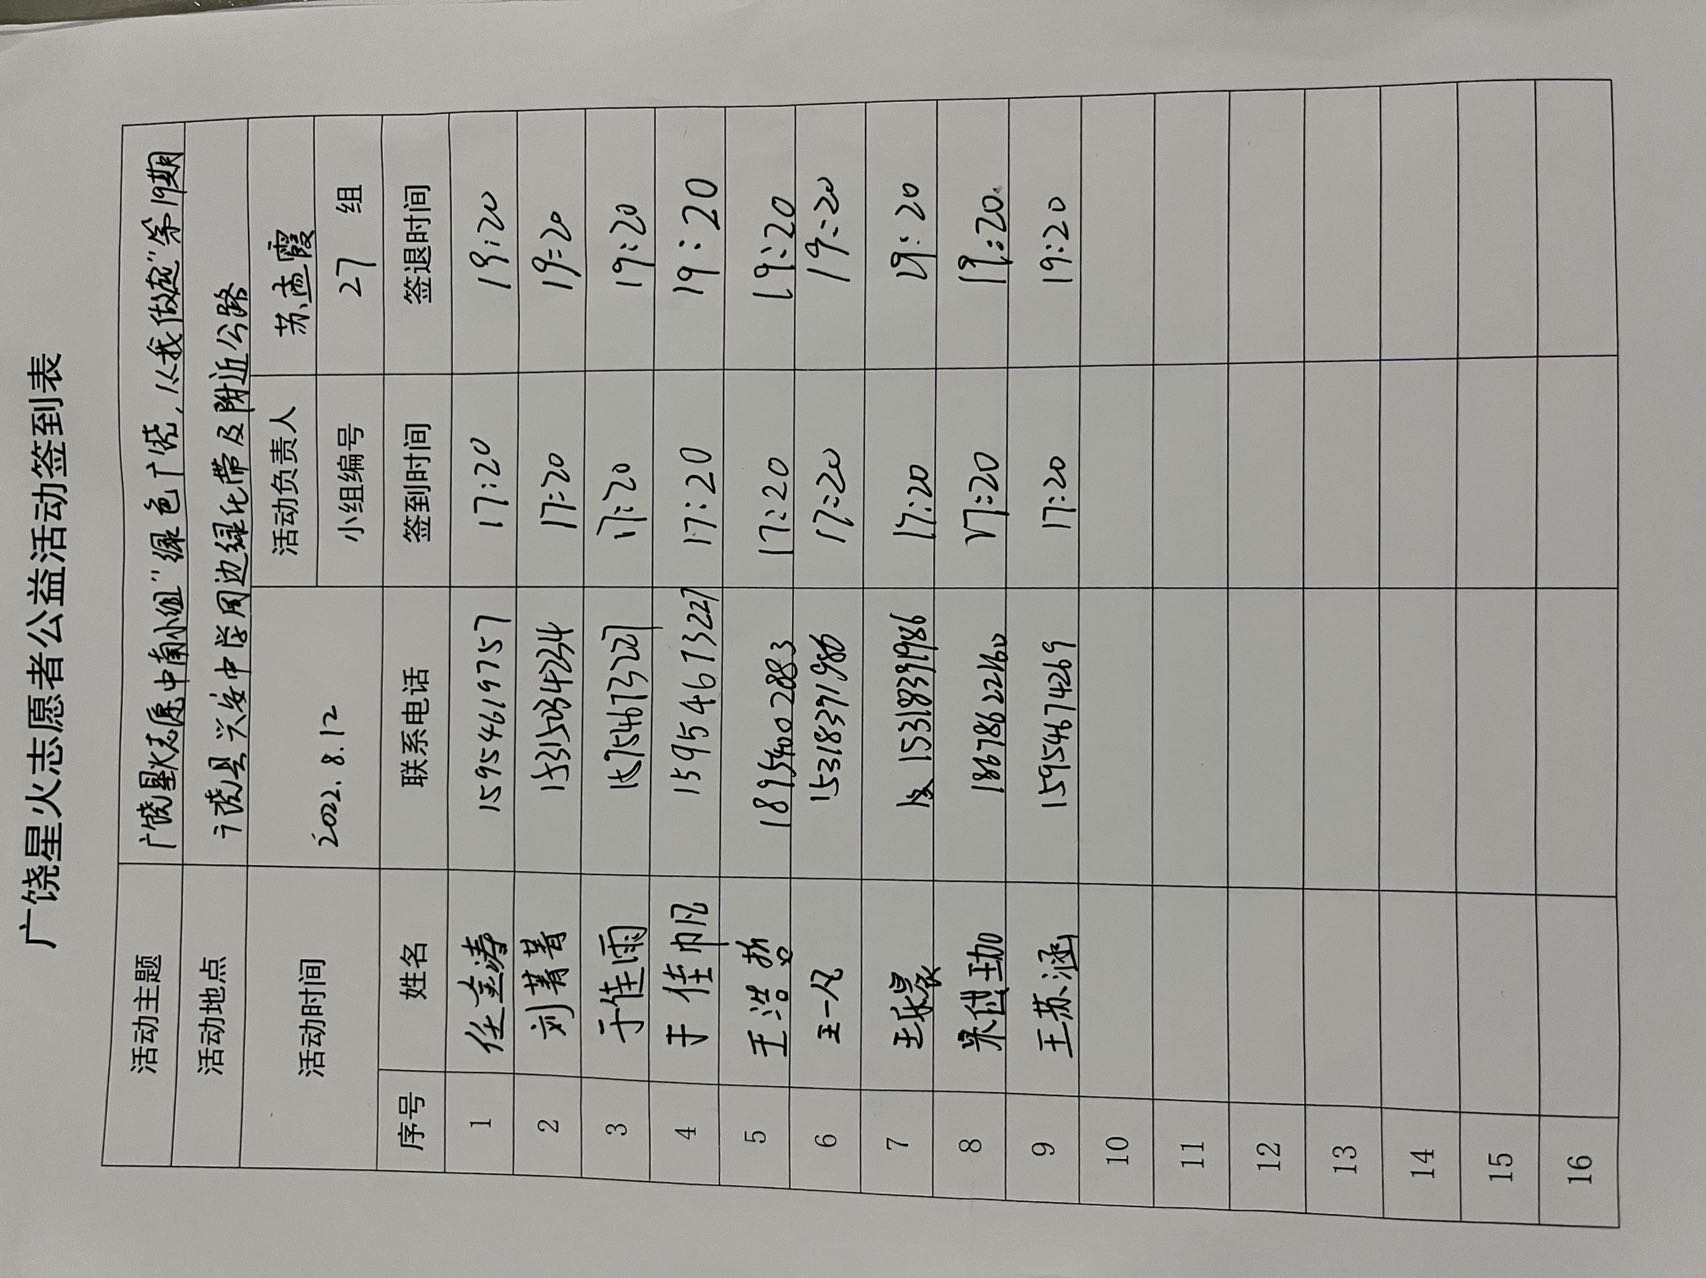 广饶星火志愿者公益活动签到表
活动主题 广饶星火志愿中南小组"绿色广饶,从我做起"第19期
活动地点 广饶县兴安中学周边绿化带及附近公路
活动时间 2022.8.12 活动负责人 苏孟霞
小组编号 27 组
序号 姓名 联系电话 签到时间 签退时间
1 任金涛 15954619757 17:20 19:20
2 刘菁菁 15315034234 17:20 19:20
3 于佳雨 17:20 19:20
4 于佳帆 15954673227 17:20 19:20
5 王浩哲 18954002883 17:20 19:20
6 王一凡 15318391986 17:20 19:20
7 17:20 19:20
8 18678622160 17:20 19:20
9 王苏涵 15954674269 17:20 19:20
10
11
12
13
14
15
16